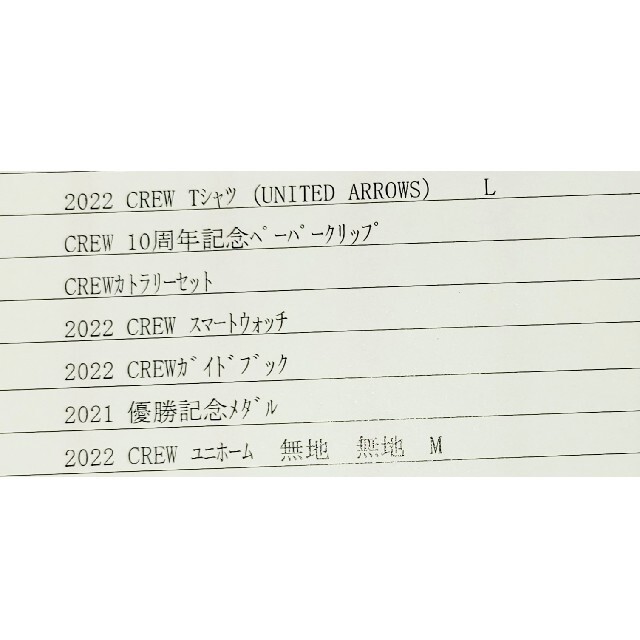 2022 CREW Tｼｬﾂ (UNITED ARROWS) L
CREW 10周年記念ﾍﾟｰﾊﾟｰｸﾘｯﾌﾟ
CREWｶﾄﾗﾘｰｾｯﾄ
2022 CREW ｽﾏｰﾄｳｫｯﾁ
2022 CREWｶﾞｲﾄﾞﾌﾞｯｸ
2021 優勝記念ﾒﾀﾞﾙ
2022 CREW ﾕﾆﾎｰﾑ 無地 無地 M